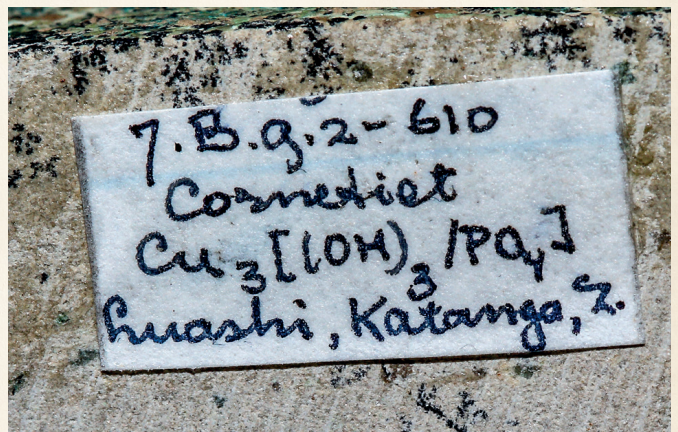 7.B.g.2-610
Cornetiet
Cu₃[(OH)₃/PO₄]
Luashi, Katanga, Z.